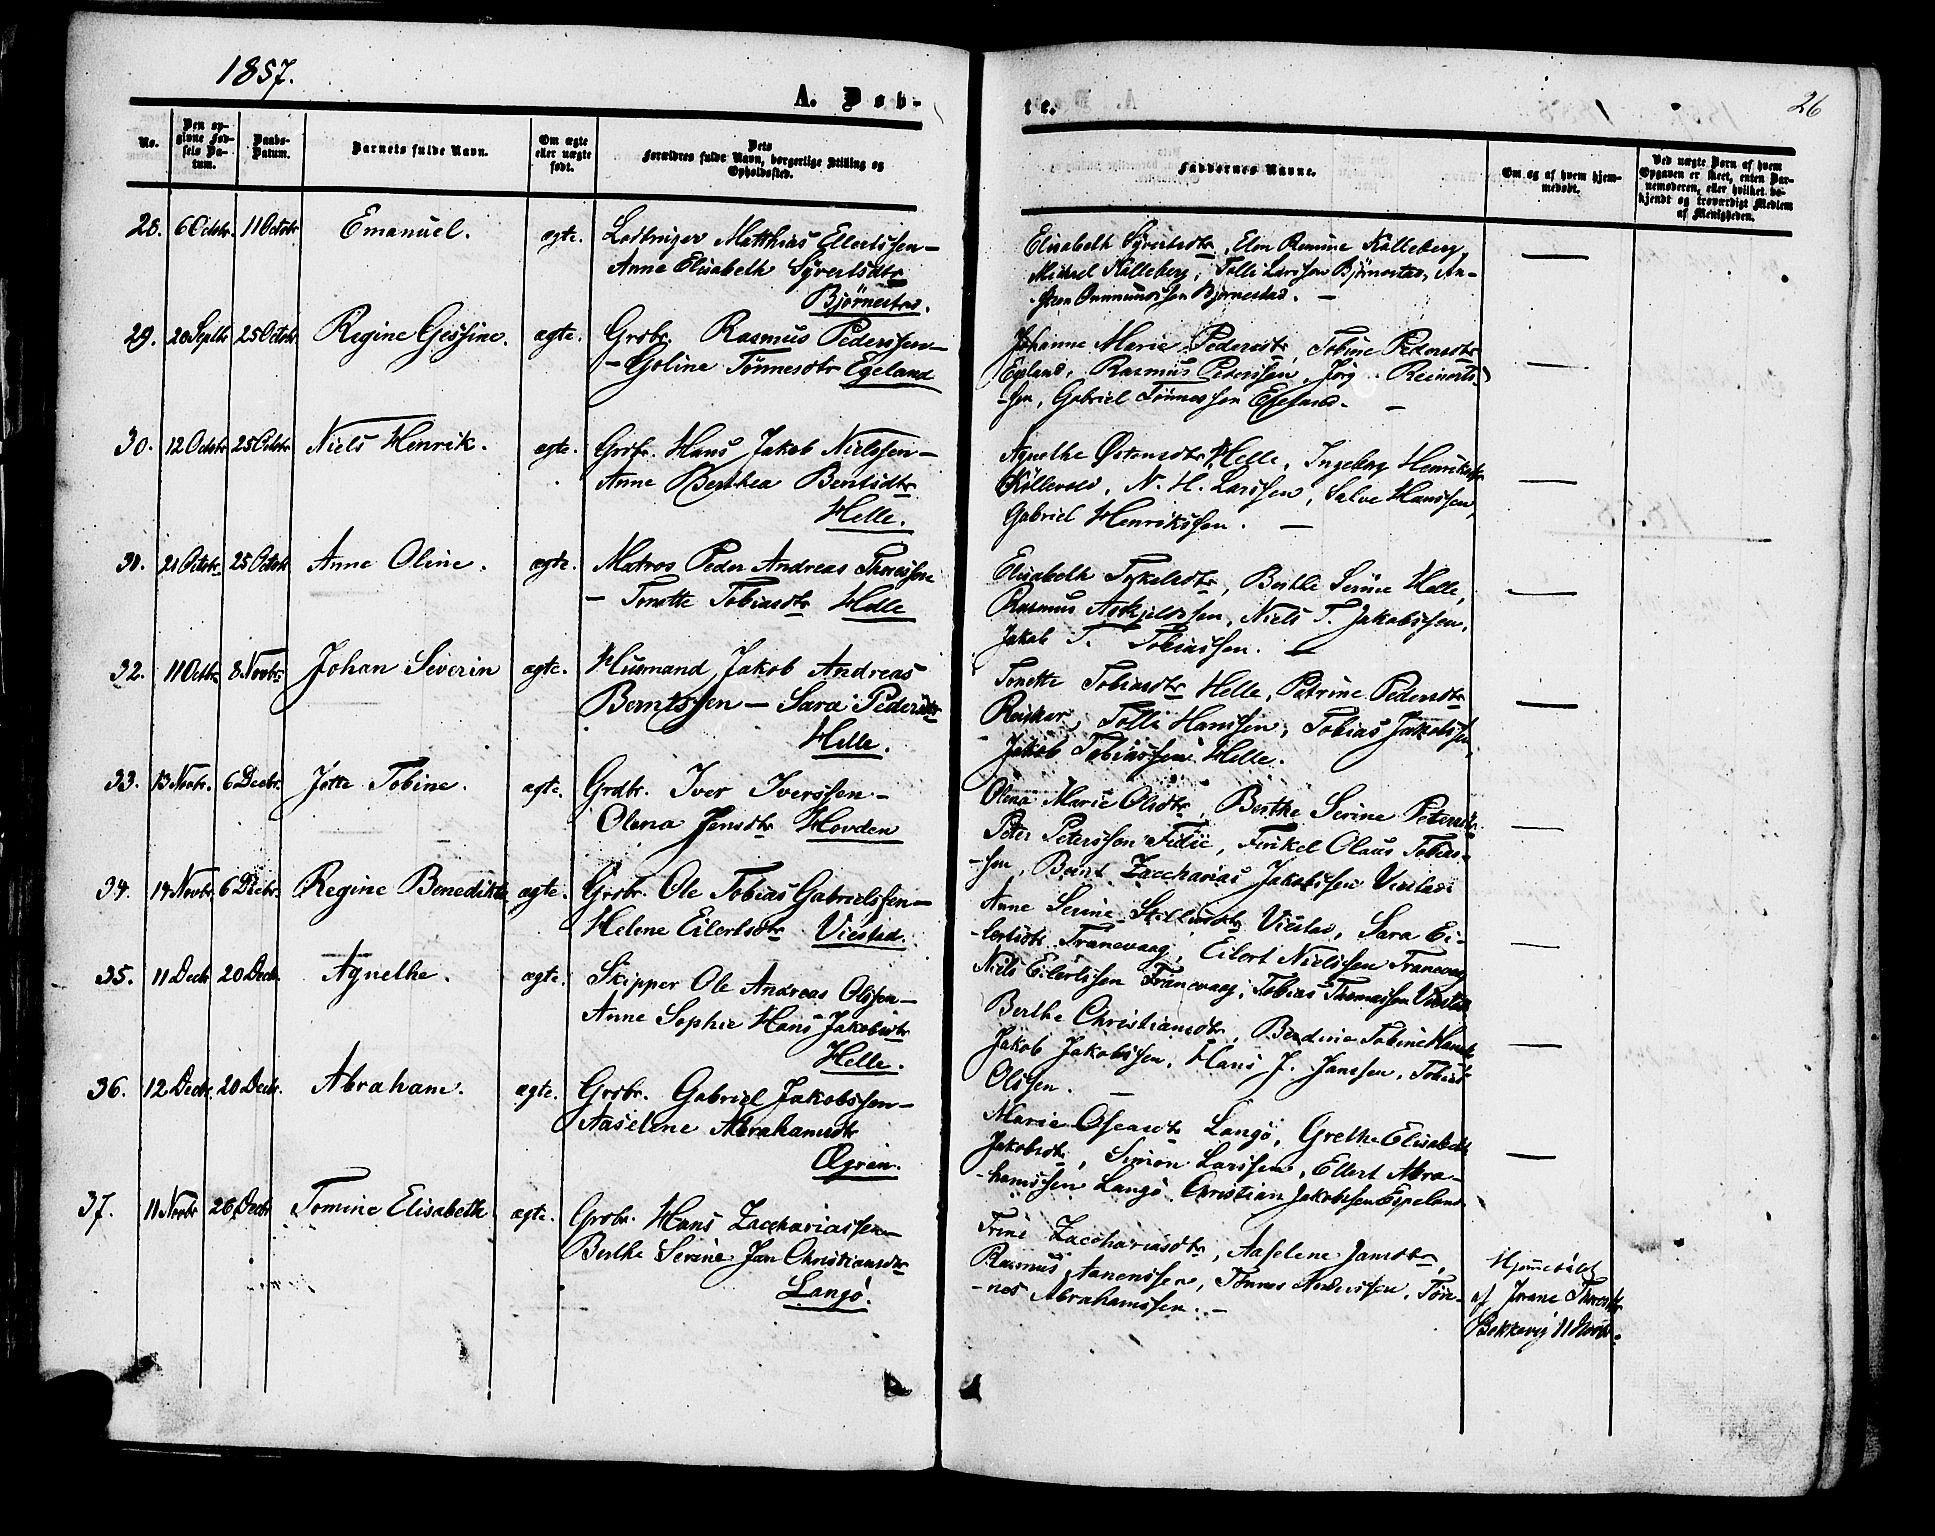 1857.
A. Døb-
te.
26
No.
Den opgivne Fødsels Datum.
Daabs-Datum.
Barnets fulde Navn.
Om ægte eller uægte født.
Dets Forældres fulde Navn, borgerlige Stilling og Opholdssted.
Faddernes Navne.
Om og af hvem hjemmedøbt.
Ved uægte Børn af hvem Opgaven er skeet, enten Barnemoderen, eller hvilket bekjendt og troværdigt Medlem af Menigheden.
28. 6 Octbr. 11 Octbr. Emanuel. ægte. Matthias Ellertssen —
Anne Elisabeth Syvertsdtr
Bjørnestad.
Elisabeth Syvertsdtr, Kalleberg,
Michael Kalleberg, Tolli Larssen Bjørnestad,
Gunmundssen Bjørnestad. —
29. 20 Septbr 25 Octbr Regine Gessine. ægte. Grdbr. Rasmus Pederssen —
— Goline Tønnesdtr Egeland
Johanne Marie Pedersdtr, Tobine Pedersdtr
Egeland, Rasmus Pederssen, Reinerts-
-sen, Gabriel Tønnessen Egeland. —
30. 12 Octbr 25 Octbr Niels Henrik. ægte. Grdbr. Hans Jakob Nielssen —
Anne Berthea Berntsdtr
Helle.
Agnethe Østensdtr Helle, Ingeborg Henriksdtr
N. H. Larssen, Salve Hanssen,
Gabriel Henrikssen. —
31. 21 Octbr. 25 Octbr Anne Oline. ægte. Matros Peder Andreas Thorsssen
— Tonette Tobiasdtr Helle
Elisabeth Berthe Serine Helle,
Rasmus Askjeldssen, Niels T. Jakobssen,
Jakob T. Tobiassen. —
32. 11 Octbr. 8 Novbr. Johan Severin ægte. Husmand Jakob Andreas
Berntssen — Sara Pedersdtr
Helle.
Tonette Tobiasdtr Helle, Patrine Pedersdtr
Tolli Hanssen, Tobias Jakobssen,
Jakob Tobiassen Helle.
33. 13 Novbr. 6 Decbr. Jøtte Tobine. ægte. Grdbr. Iver Iverssen —
Olena Jensdtr Hovden
Olena Marie Olsdtr, Berthe Serine Petersdtr
Peter Peterssen Fidie, Olaus Tobias-
-sen, Bernt Zaccharias Jakobssen Viestad
34. 14 Novbr. 6 Decbr. Regine Benedikte ægte. Grdbr. Ole Tobias Gabrielssen —
Helene Eilertsdtr Viestad.
Anne Serine Viestad, Sara Ei-
-lertsdtr Tranevaag, Eilert Nielssen Tranevaag
Niels Eilertssen Tranevaag, Tobias Thomassen Viestad
35. 11 Decbr 20 Decbr. Agnethe. ægte. Skipper Ole Andreas Olssen —
Anne Sophie Hans Jakobsdtr
Helle.
Berthe Christiansdtr, Berdine Tobine Hansdtr
Jakob Jakobssen, Hans J. Janssen, Tobias
Olssen. —
36. 12 Decbr. 20 Decbr. Abraham. ægte. Grdbr. Gabriel Jakobssen —
Aaselene Abrahamsdtr
Øgrein.
Marie Langø, Grethe Elisabeth
Jakobsdtr, Simon Larssen, Ellert Abra-
-hamssen Langø, Christian Jakobssen Espeland.
37. 11 Novbr 26 Decbr Tomine Elisabeth ægte. Grdbr. Hans Zacchariassen
Berthe Serine Jan Christiansdtr
Langø.
Trine Zacchariasdtr, Aaselene Jansdtr,
Rasmus Aanenssen, Tønnes Anderssen, Tøn-
-nes Abrahamssen. —
Hjemmedøbt
af Jorane Thorsdtr
11 Novbr.